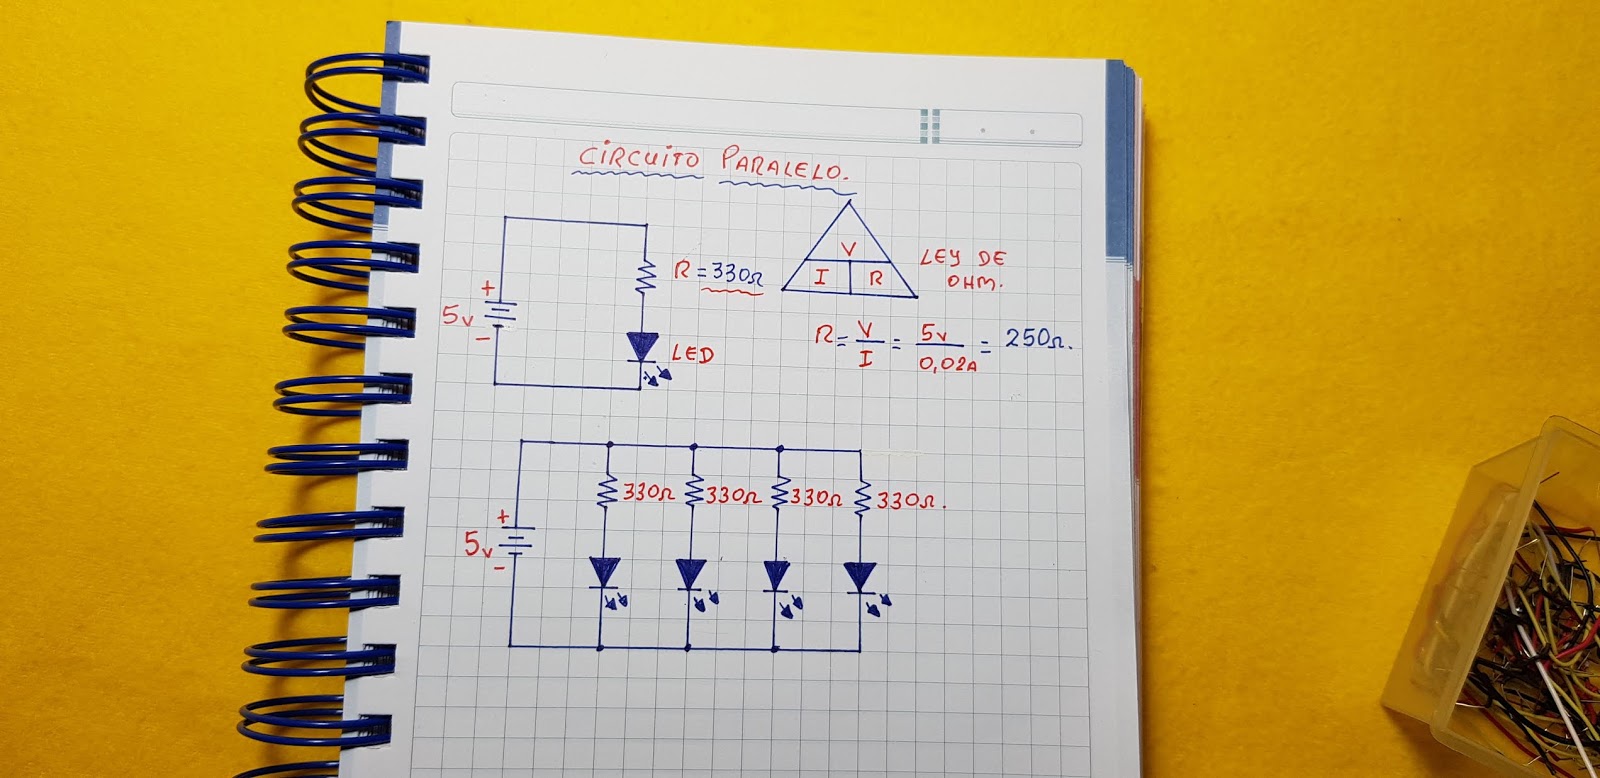 CIRCUITO PARALELO.
+
5v
-
R = 330Ω
LED
V
I R
LEY DE
OHM.
R = V/I = 5v/0,02A = 250Ω.
+
5v
-
330Ω 330Ω 330Ω 330Ω.